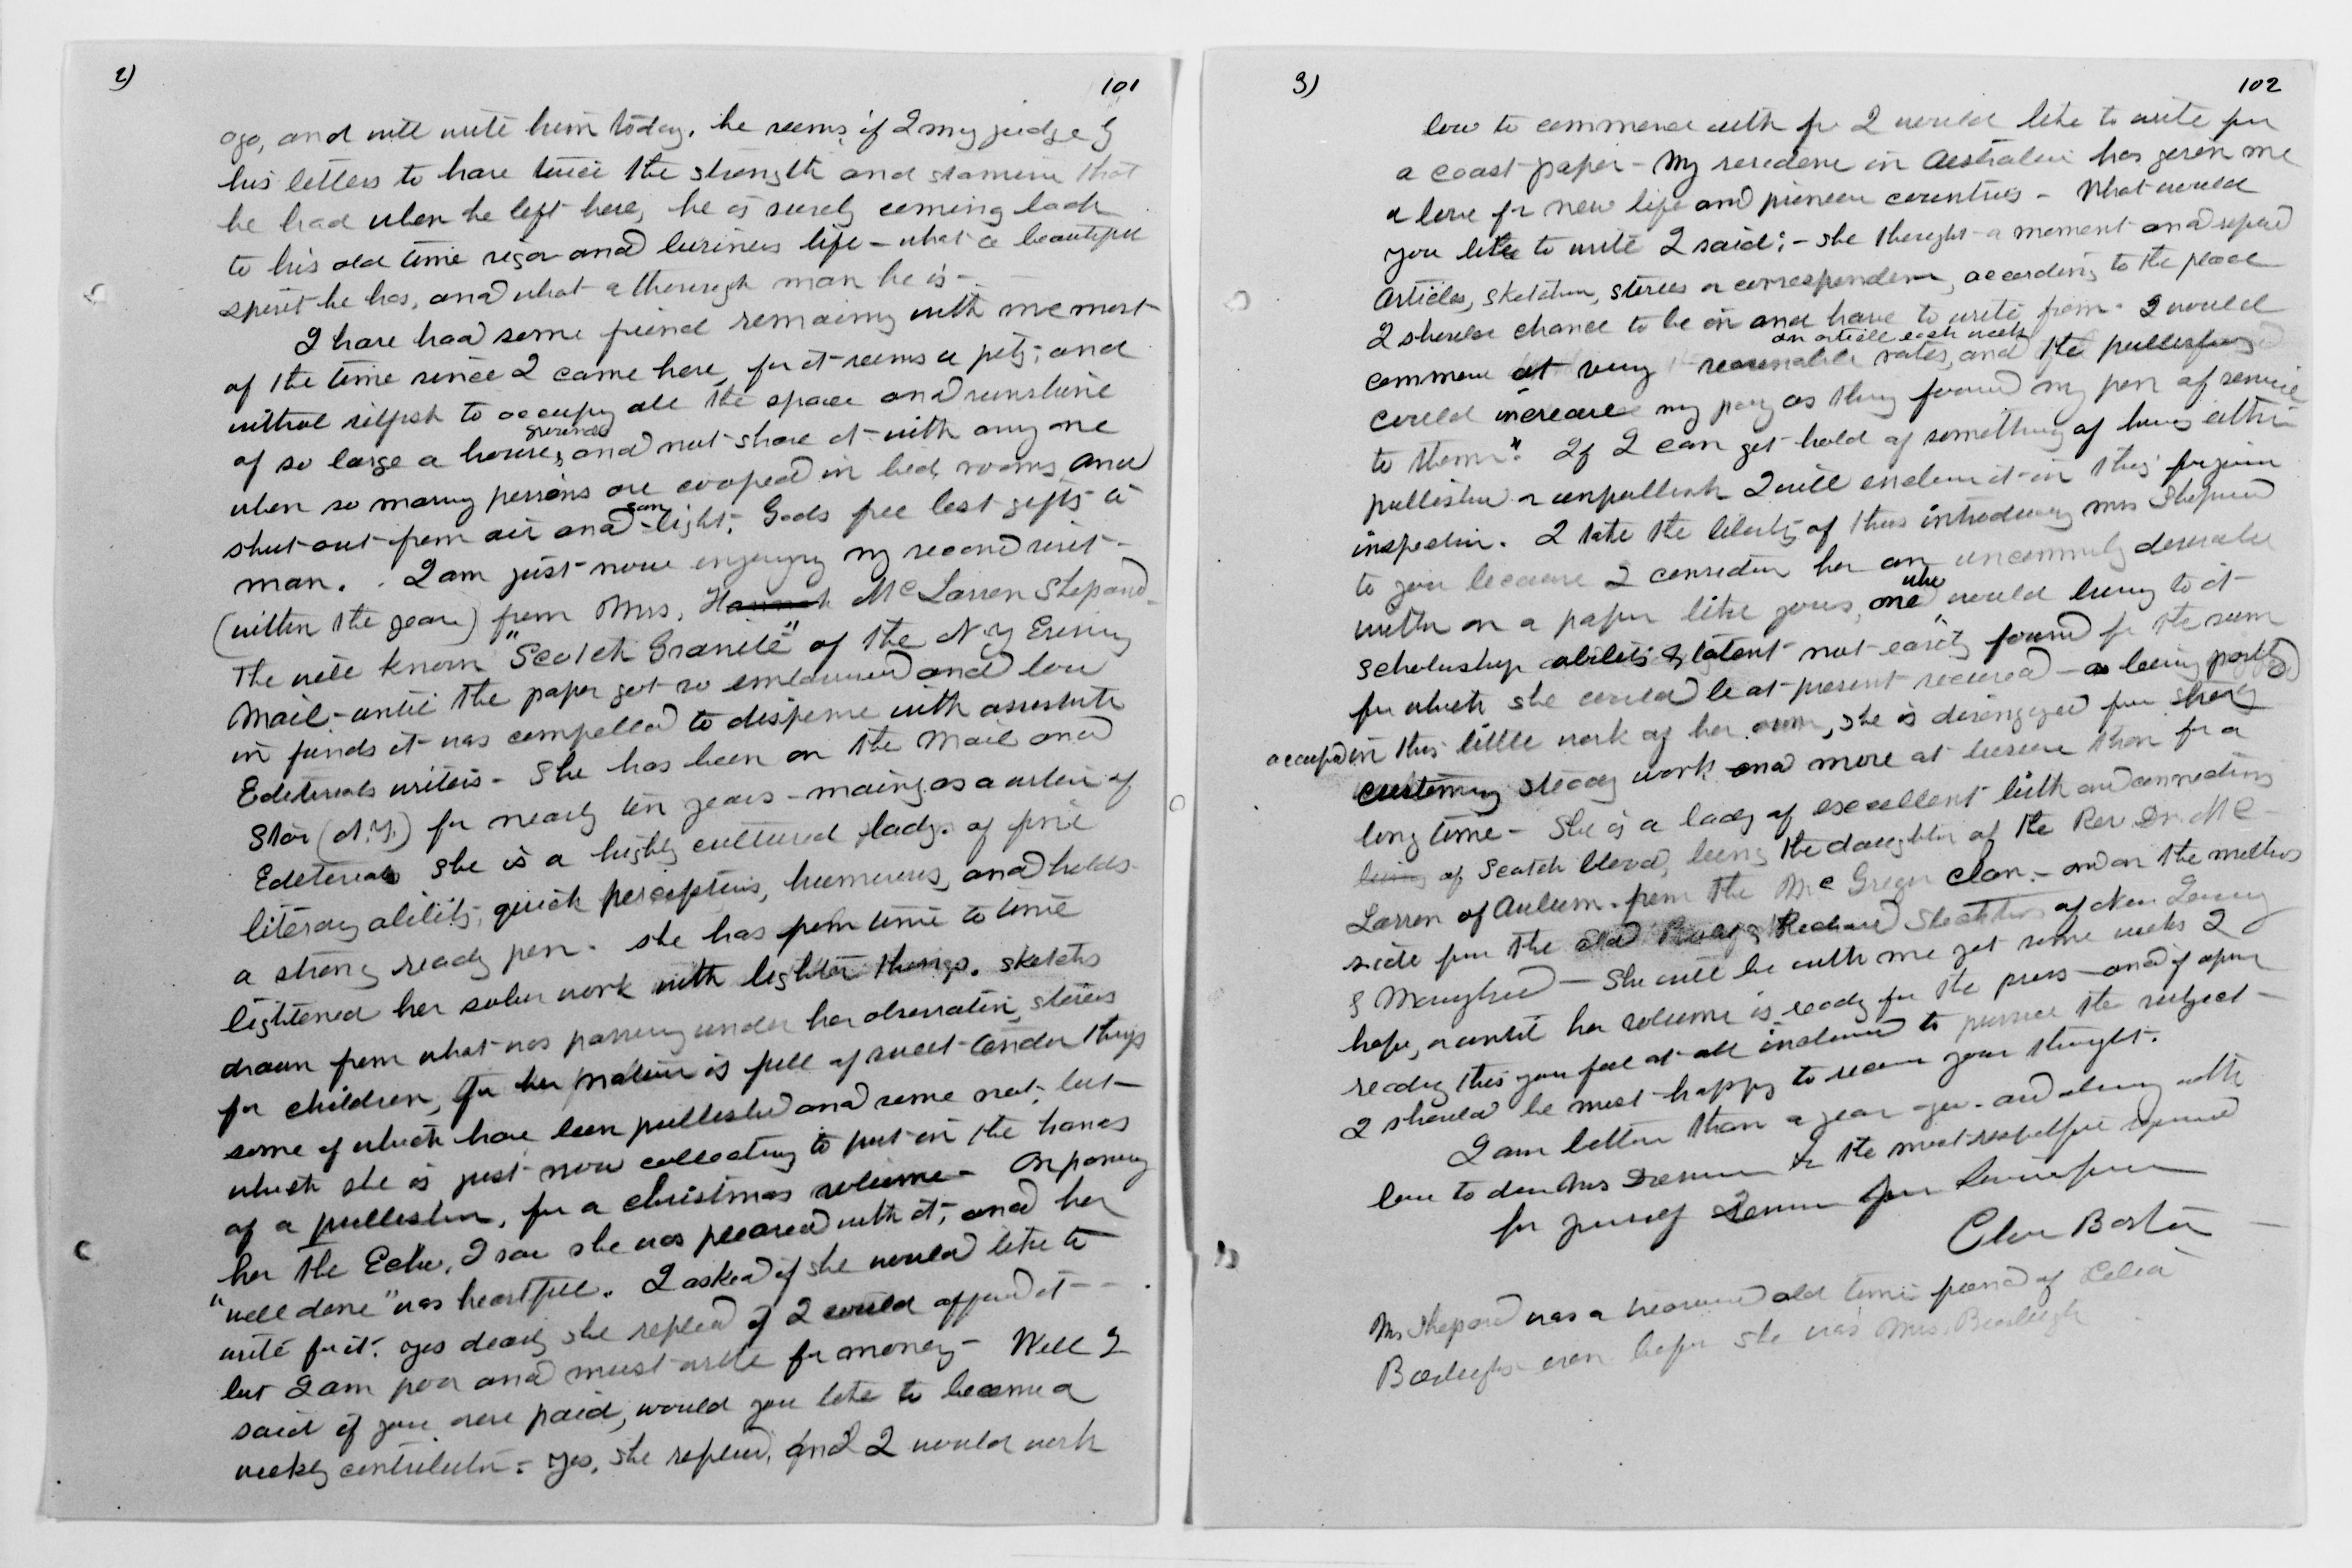 2)
101
ago, and will write him today. he seems, if I my judge by
his letters to have twice the strength and stamina that
he had when he left here, he is surely coming back
to his old time vigor and business life - what a beautiful
spirit he has, and what a thorough man he is -
I have had some friend remaining with me most
of the time since I came here, for it seems a pity, and
withal selfish to occupy all the space and sunshine
grounds
of so large a house, and not share it with any one
when so many persons are cooped in bed rooms and
sun
shut out from air and light, Gods free best gifts to
man. I am just now enjoying my second visit
(within the year) from Mrs. Hannah McLarren Shepard
The well known "Scotch Granite" of the N.Y Evening
Mail - until the paper got so embarrassed and low
in funds it was compelled to dispense with assistants
Editorials writers - She has been on the Mail and
Star (N.Y.) for nearly ten years - mainly as a writer of
Editorials She is a highly cultured lady. of fine
literary ability, quick perceptions, humerous, and holds
a strong ready pen. she has from time to time
lightened her sober work with lighter things. sketches
drawn from what was passing under her observation, stories
for children, for her nature is full of sweet tender things
some of which have been published and some not, but
which she is just now collecting to put in the hands
of a publisher, for a christmas volume - On passing
her the Echo, I saw she was pleased with it, and her
"well done" was heartfull. I asked if she would like to
write for it. yes dearly she replied if I could afford it -
but I am poor and must write for money - Well I
said if you were paid, would you like to become a
weekly contributor - yes, she replied, and I would work
3)
102
low to commence with for I would like to write for
a coast paper - My residence in Australia has given me
a love for new life and pioneer countries - What would
you like to write I said; - she thought a moment and replied
Articles, Sketches, stories or correspondence, according to the place
I should chance to be in and have to write from. I would
an article each week
commence at very reasonable rates, and the publishers
could increase my pay as they found my pen of service
to them". If I can get hold of something of hers either
published or unpublished I will enclose it in this for your
inspection. I take the liberty of thus introducing Mrs Shepard
to you because I consider her an uncommonly desirable
who
writer on a paper like yours, one would bring to it
scholarship ability & talent not easily found for the sum
for which she could be at present secured - as being partly
occupied in this little work of her own, she is disengaged from
customary steady work and more at leisure than for a
long time - She is a lady of excellent birth and connections
being of Scotch blood, being the daughter of the Rev Dr. Mc
Larren of Auburn. from the McGregor clan. - and on the mothers
side from the old Richard Stockton of New Jersey
& Maryland - She will be with me yet some weeks I
hope, or until her volume is ready for the press - and if upon
reading this you feel at all inclined to pursue the subject -
I should be most happy to receive your thought.
I am better than a year ago. and along with
love to dear Mrs & the most respectful regard
for yourself
Clara Barton
Mrs Shepard was a warm old time friend of Celia
Burleigh even before she was Mrs. Burleigh